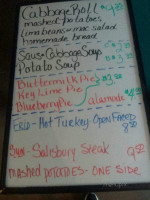 Cabbage Roll
mashed potatoes
lima beans or mac salad
homemade bread
Saus + Cabbage Soup
Potato Soup
Buttermilk Pie
Key Lime Pie
Blueberry Pie alamode
Hot Turkey - Open Faced
8.50
Salisbury Steak 9.50
mashed potatoes - ONE SIDE